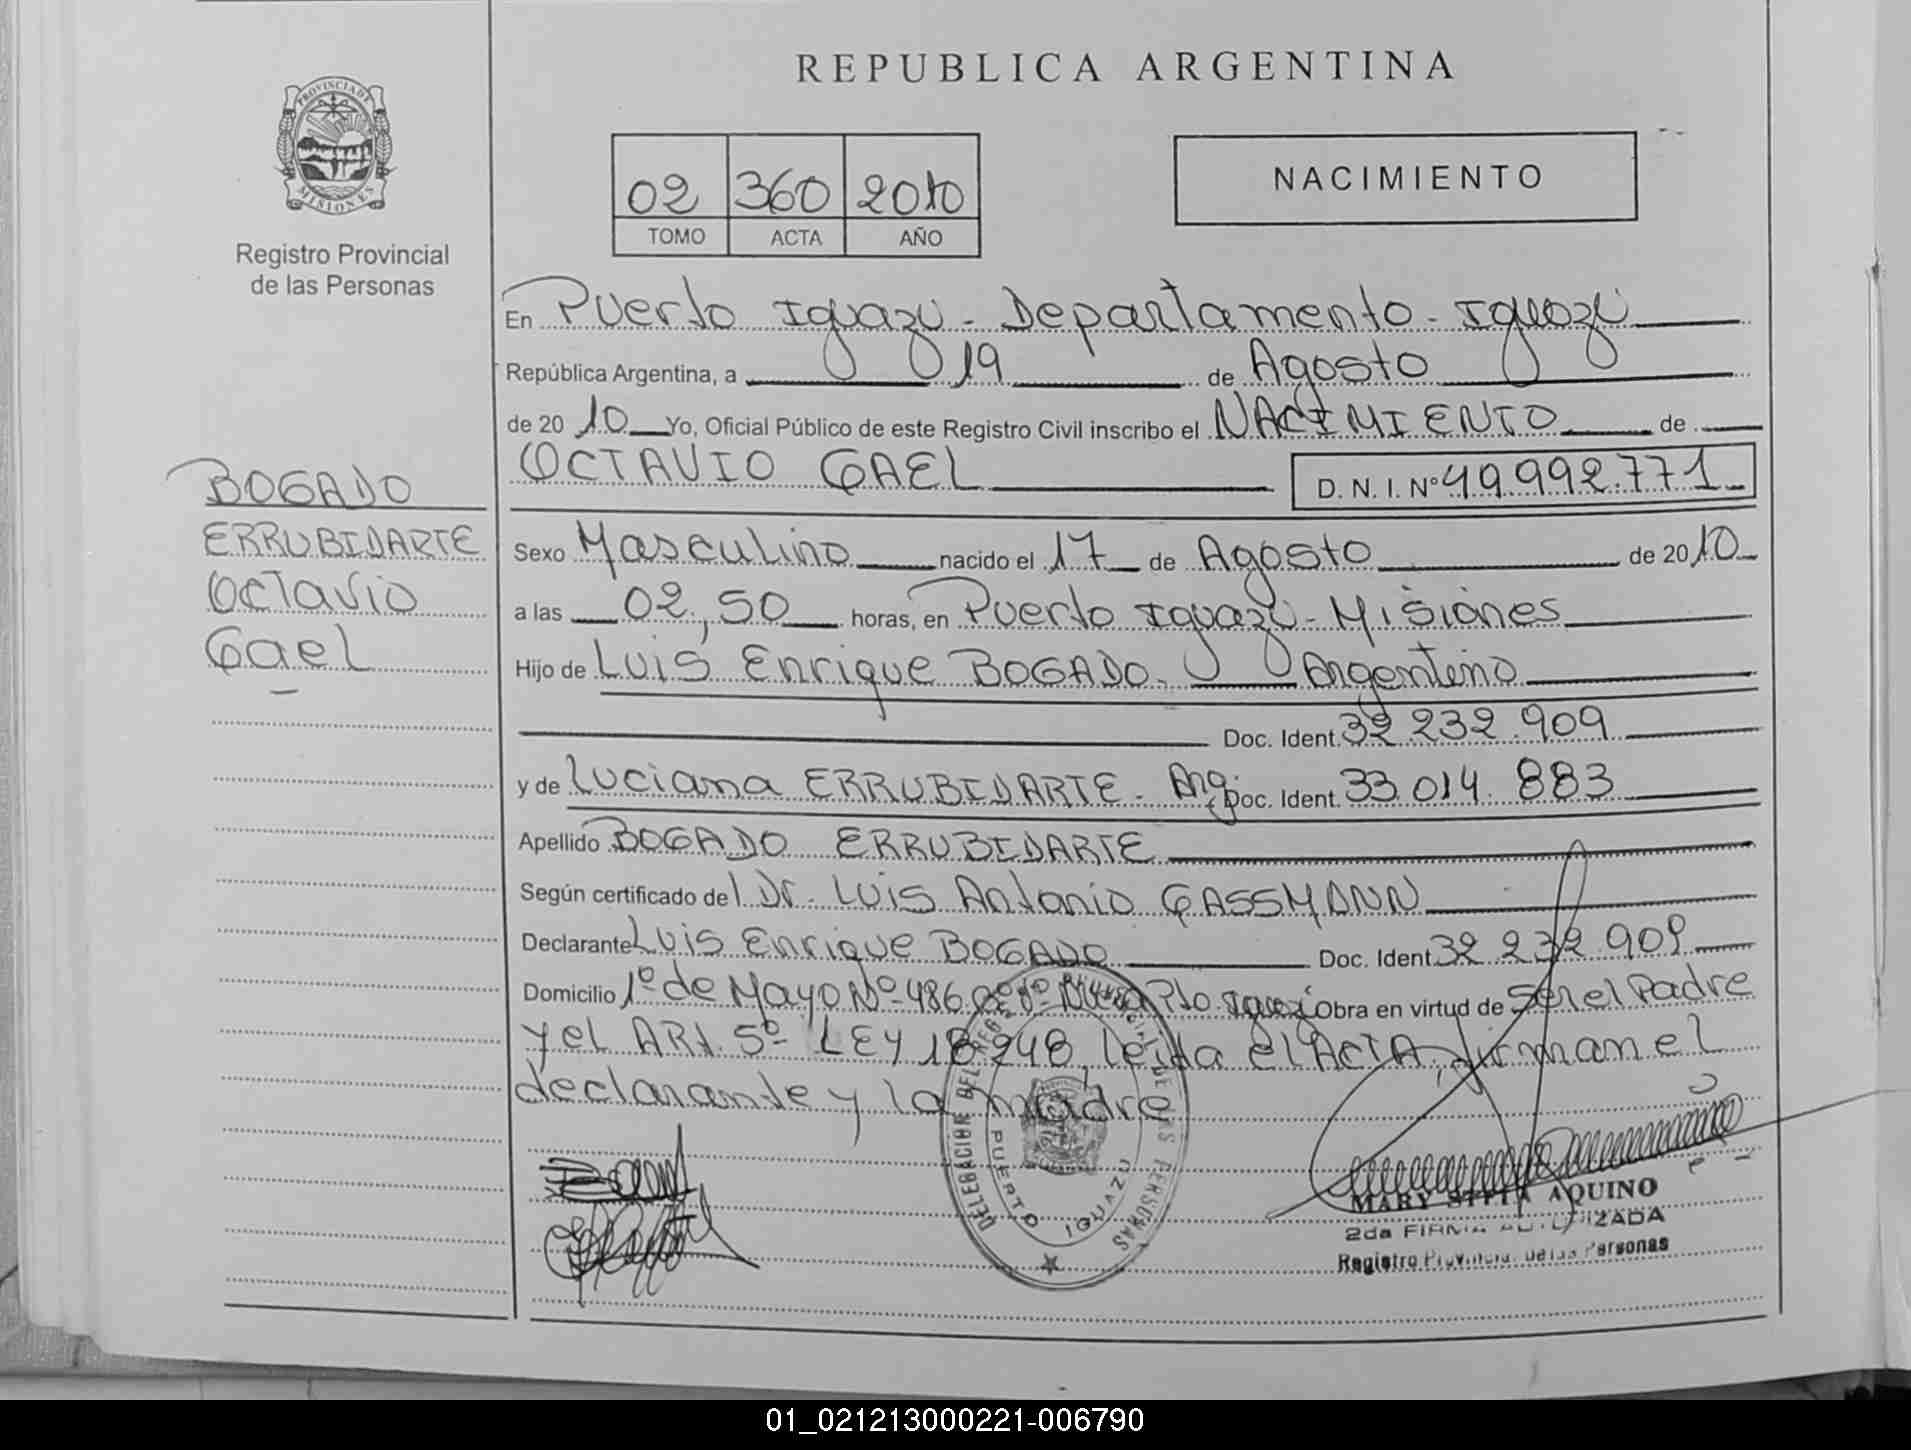 REPUBLICA ARGENTINA
PROVINCIA DE
MISIONES
Registro Provincial
de las Personas
02 360 2010
TOMO ACTA AÑO
NACIMIENTO
En Puerto Iguazú - Departamento - Iguazú
República Argentina, a 19 de Agosto
de 2010 Yo, Oficial Público de este Registro Civil inscribo el NACIMIENTO de
OCTAVIO GAEL D. N. I. Nº 49.992.771
BOGADO
ERRUBIDARTE
Octavio
Gael
Sexo Masculino nacido el 17 de Agosto de 2010
a las 02,50 horas, en Puerto Iguazú - Misiones
Hijo de Luis Enrique BOGADO. Argentino
Doc. Ident. 32 232.909
y de Luciana ERRUBIDARTE - Arg. Doc. Ident. 33.014.883
Apellido BOGADO ERRUBIDARTE
Según certificado del Dr. Luis Antonio GASSMANN
Declarante Luis Enrique BOGADO Doc. Ident. 32 232.909
Domicilio 1º de Mayo Nº 486 Pto. Iguazú Obra en virtud de Ser el Padre
y el ART. 5º LEY 18.248, leída el ACTA, firman el
declarante y la madre
DELEGACIÓN DEL PERSONAS
PUERTO IGUAZU
MARY STELA AQUINO
2da FIRMA AUTORIZADA
Registro Provincial de las Personas
01_021213000221-006790